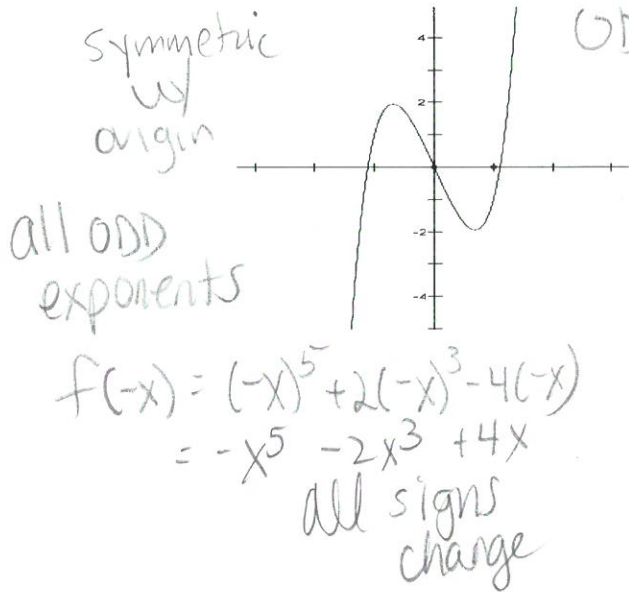 symmetric
w/
origin
all ODD
exponents
4
2
-2
-4
f(-x) = (-x)^5 + 2(-x)^3 - 4(-x)
= -x^5 - 2x^3 + 4x
all signs
change